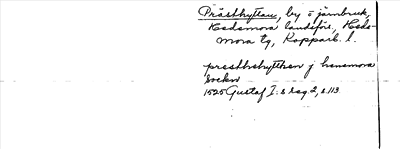 Prästhyttan, by o järnbruk,
Hedemora landsförs., Hede-
mora tg, Kopparb. l.
præsthehytthen j henemora
sockn
1525 Gustaf I:s reg 2, s 113